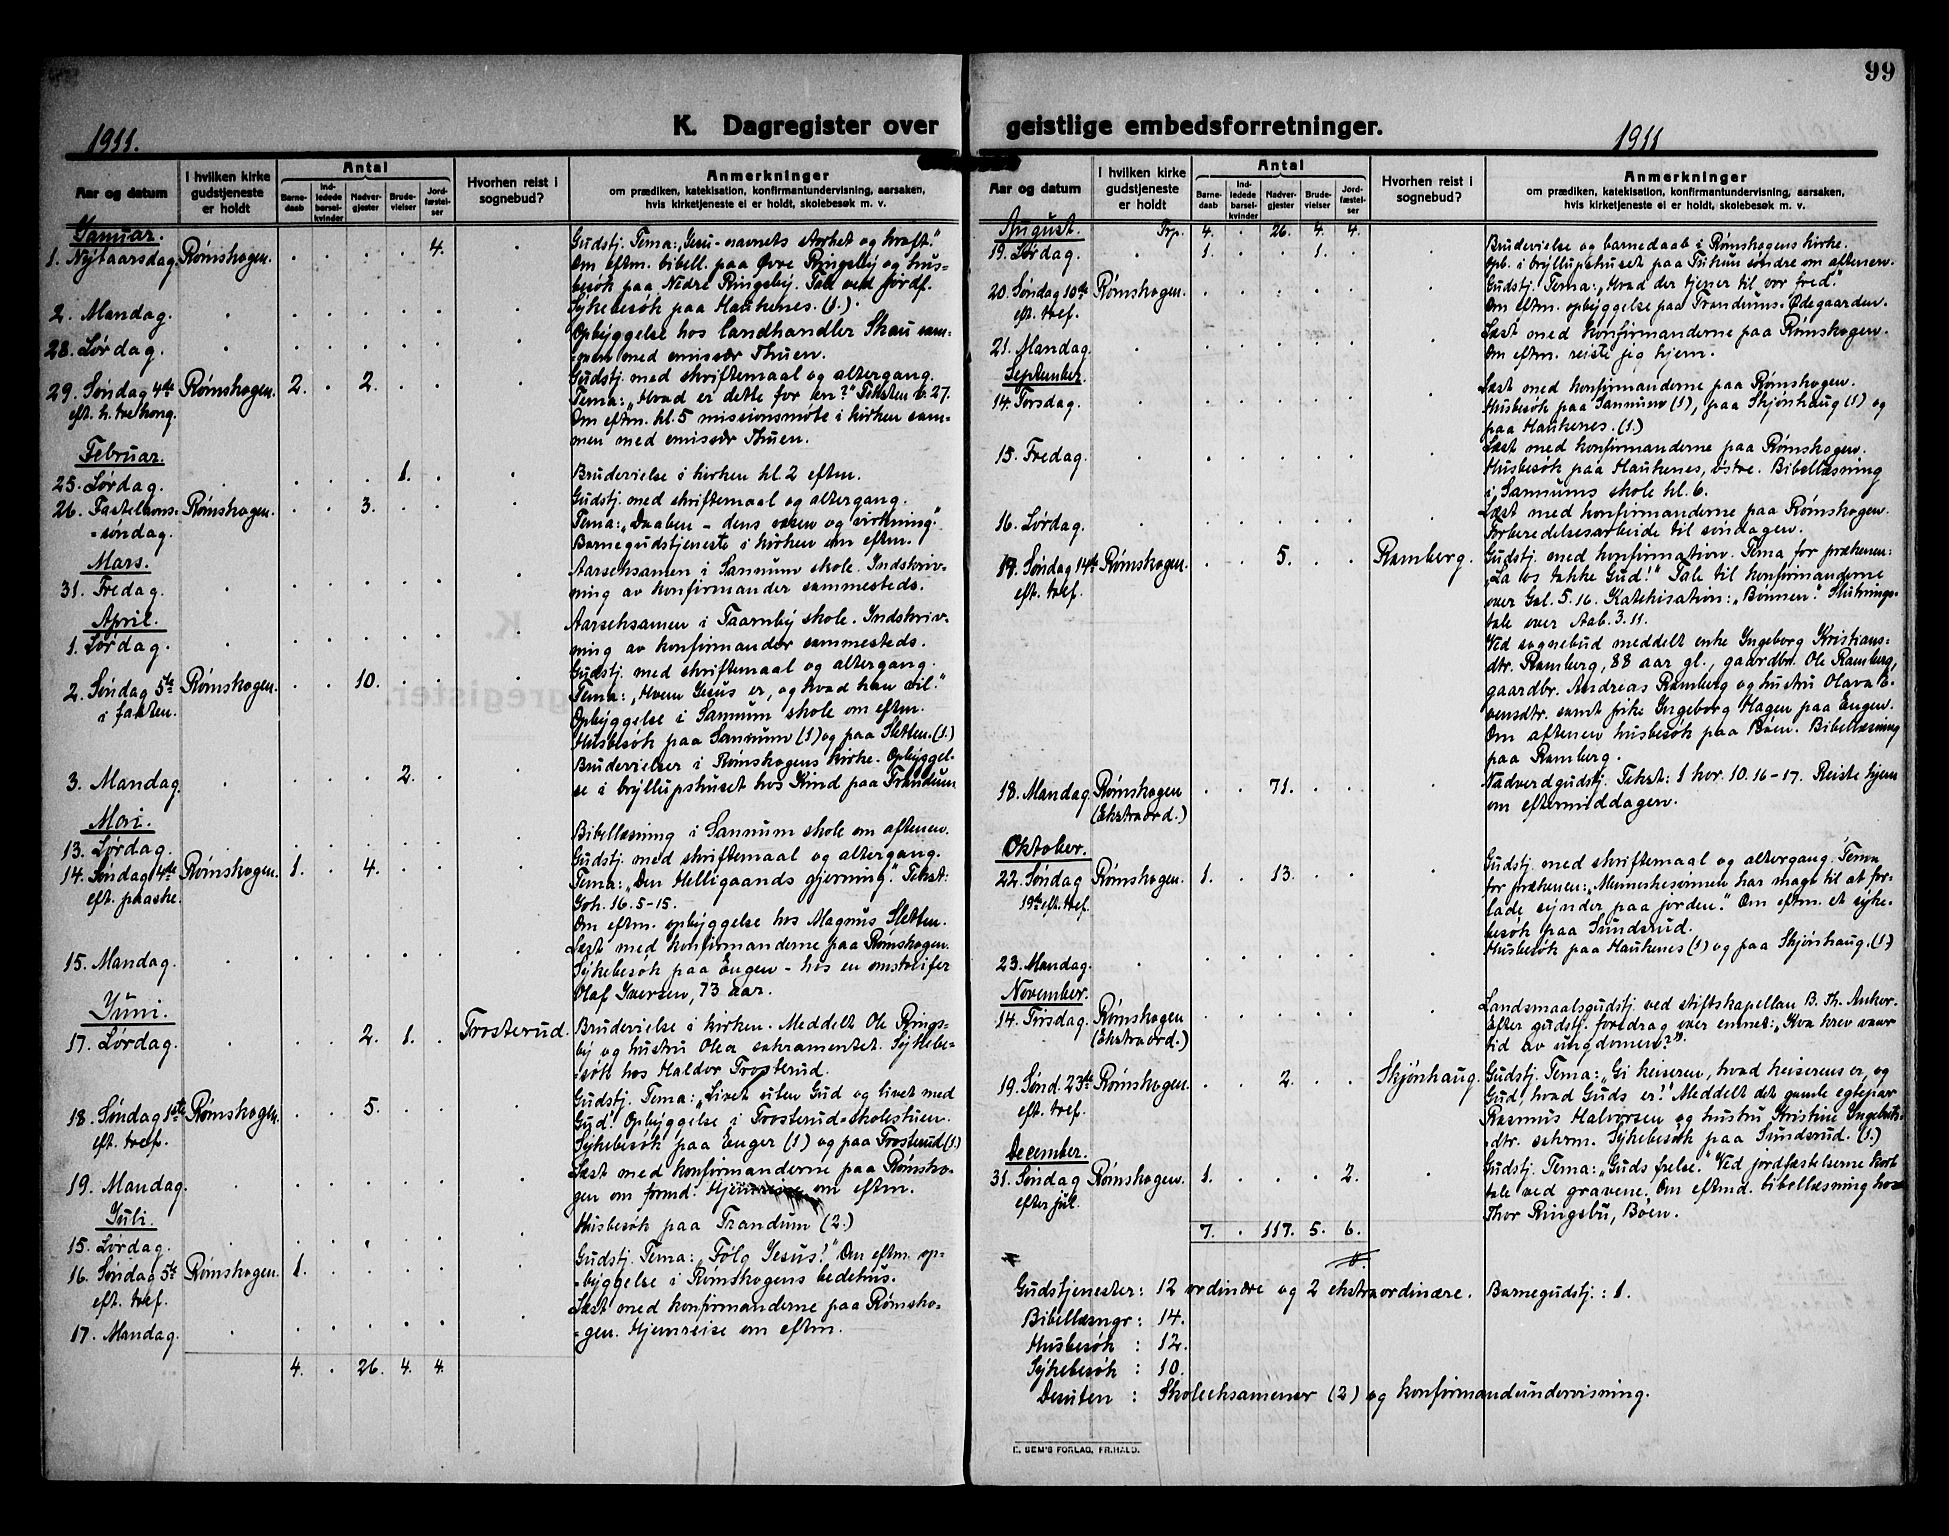 99
K. Dagregister over geistlige embedsforretninger.
1911. 1911
Aar og datum
I hvilken kirke gudstjeneste er holdt
Antal
Barne-daab
Ind-ledede barsel-kvinder
Nadver-gjester
Brude-vielser
Jord-fæstel-ser
Hvorhen reist i sognebud?
Anmerkninger
om prædiken, katekisation, konfirmantundervisning, aarsaken,
hvis kirketjeneste ei er holdt, skolebesøk m. v.
Januar.
1. Nytaarsdag. Rømskogen. . . . . 4. . Gudstj. Tema: „Jesu-navnets storhet og kraft."
Om eftm. bibell. paa Øvre Ringsby og hus-
besøk paa Nedre Ringsby. Tale ved jordf.
2. Mandag. . . . . . . . Sykebesøk paa Haukenes. (1.)
28. Lørdag. . . . . . . . Opbyggelse hos landhandler Skau sam-
men med emissær Thuen.
29. Søndag 4de Rømskogen. 2. . 2. . . . Gudstj. med skriftemaal og altergang.
eft. h. tre kong. Tema: „Hvad er dette for en?" Teksten v. 27.
Om eftm. kl. 5 missionsmøte i kirken sam-
men med emissær Thuen.
Februar.
25. Lørdag. . . . . 1. . . Brudevielse i kirken kl. 2 eftm.
26. Fastelavns- Rømskogen. . . 3. . . . Gudstj. med skriftemaal og altergang.
-søndag. Tema: „Daaben - dens væsen og virkning."
Barnegudstjeneste i kirken om eftm.
Mars.
31. Fredag. . . . . . . . Aarseksamen i Sannum skole. Indskriv-
ning av konfirmander sammesteds.
April.
1. Lørdag. . . . . . . . Aarseksamen i Taarnby skole. Indskriv-
ning av konfirmander sammesteds.
2. Søndag 5te Rømskogen. . . 10. . . . Gudstj. med skriftemaal og altergang.
i fasten. Tema: „Hvem Jesus er, og hvad han vil."
Opbyggelse i Sannum skole om eftm.
Husbesøk paa Sannum (1) og paa Sletten. (1.)
3. Mandag. . . . . 2. . . Brudevielser i Rømskogens kirke. Opbyggel-
se i bryllupshuset hos Kind paa Trandum
Mai.
13. Lørdag. . . . . . . . Bibellæsning i Sannum skole om aftenen.
14. Søndag 4de Rømskogen. 1. . 4. . . . Gudstj. med skriftemaal og altergang.
eft. paaske. Tema: „Den Helligaands gjerning". Tekst:
Joh. 16. 5-15.
Om eftm. opbyggelse hos Magnus Sletten.
15. Mandag. . . . . . . . Læst med konfirmanderne paa Rømskogen.
Sykebesøk paa Engen - hos en omstreifer
Olaf Iversen, 73 aar.
Juni.
17. Lørdag. . . . 2. 1. . Trosterud. Brudevielse i kirken. Meddelt Ole Rings-
by og hustru Olea sakramentet. Sykebe-
søk hos Haldor Trosterud.
18. Søndag 1ste Rømskogen. . . 5. . . . Gudstj. Tema: „Livet uten Gud og livet med
eft. tref. Gud". Opbyggelse i Trosterud-skolestuen.
Sykebesøk paa Enger (1) og paa Trosterud (1.)
19. Mandag. . . . . . . . Læst med konfirmanderne paa Rømsko-
gen om formd. Hjemreise om eftm.
Juli.
15. Lørdag. . . . . . . . Husbesøk paa Trandum (2.)
16. Søndag 5te Rømskogen. 1. . . . . . Gudstj. Tema: „Følg Jesus!" Om eftm. op-
eft. tref. -byggelse i Rømskogens bedehus.
17. Mandag. . . . . . . . Læst med konfirmanderne paa Rømsko-
-gen. Hjemreise om eftm.
4. . 26. 4. 4.
Aar og datum
I hvilken kirke gudstjeneste er holdt
Antal
Barne-daab
Ind-ledede barsel-kvinder
Nadver-gjester
Brude-vielser
Jord-fæstel-ser
Hvorhen reist i sognebud?
Anmerkninger
om prædiken, katekisation, konfirmantundervisning, aarsaken,
hvis kirketjeneste ei er holdt, skolebesøk m. v.
August. Trp. 4. . 26. 4. 4.
19. Lørdag. . 1. . . 1. . . Brudevielse og barnedaab i Rømskogens kirke.
Opb. i bryllupshuset paa Tukun søndre om aftenen.
20. Søndag 10de Rømskogen. . . . . . . Gudstj. Tema: „Hvad der tjener til vor fred".
eft. tref. Om eftm. opbyggelse paa Trandums-Ødegaarden.
21. Mandag. . . . . . . . Læst med konfirmanderne paa Rømskogen.
Om eftm. reiste jeg hjem.
September.
14. Torsdag. . . . . . . . Læst med konfirmanderne paa Rømskogen.
Husbesøk paa Sannum (1), paa Skjønhaug (1) og
paa Haukenes. (1.)
15. Fredag. . . . . . . . Læst med konfirmanderne paa Rømskogen.
Husbesøk paa Haukenes, østre. Bibellæsning
i Sannums skole kl. 6.
16. Lørdag. . . . . . . . Læst med konfirmanderne paa Rømskogen.
Forberedelsesarbeide til søndagen.
17. Søndag 14de Rømskogen. . . 5. . . Ramberg. Gudstj. med konfirmation. Tema for prækenen:
eft. tref. „La os takke Gud!" Tale til konfirmanderne
over Gal. 5. 16. Katekisation: „Bønnen". Slutnings-
tale over Aab. 3. 11.
Ved sognebud meddelt enke Ingeborg Kristians-
dtr. Ramberg, 88 aar gl., gaardbr. Ole Ramberg,
gaardbr. Andreas Ramberg og hustru Olava E-
vensdtr. samt frike Ingeborg Hagen paa Engen.
Om aftenen husbesøk paa Bøen. Bibellæsning
paa Ramberg.
18. Mandag. Rømskogen . . 71. . . . Nadverdgudstj. Tekst: 1 kor. 10. 16-17. Reiste hjem
(Ekstraord.) om eftermiddagen.
Oktober.
22. Søndag Rømskogen. 1. . 13. . . . Gudstj. med skriftemaal og altergang. Tema
19de eft. tref. for prækenen: „Menneskesønnen har magt til at for-
lade synder paa jorden." Om eftm. et syke-
besøk paa Sundsrud.
23. Mandag. . . . . . . . Husbesøk paa Haukenes (1) og paa Skjønhaug. (1.)
November.
14. Tirsdag. Rømskogen . . . . . . Landsmaalsgudstj. ved stiftskapellan B. Th. Anker.
(Ekstraord.) Efter gudstj. foredrag over emnet: „Kva krev vaar
tid av ungdomen?".
19. Sønd. 23de Rømskogen. . . 2. . . Skjønhaug. Gudstj. Tema: „Gi keiseren, hvad keiserens er, og
eft. tref. Gud, hvad Guds er!" Meddelt det gamle egtepar
Rasmus Halvorsen og hustru Kristine Ingebrits-
dtr. sakrm. Sykebesøk paa Sundsrud. (1.)
December.
31. Søndag Rømskogen. 1. . . . 2. . Gudstj. Tema: „Guds frelse." Ved jordfæstelserne kort
efter jul. tale ved gravene. Om eftmd. bibellæsning hos
Thor Ringsbu, Bøen.
7. . 117. 5. 6.
Gudstjenester: 12 ordinære og 2 ekstraordinære. Barnegudstj.: 1.
Bibellæsngr: 14.
Husbesøk : 12.
Sykebesøk : 10.
Desuten : Skoleeksamener (2) og konfirmandundervisning.
E. SEM'S FORLAG, FR.HALD.